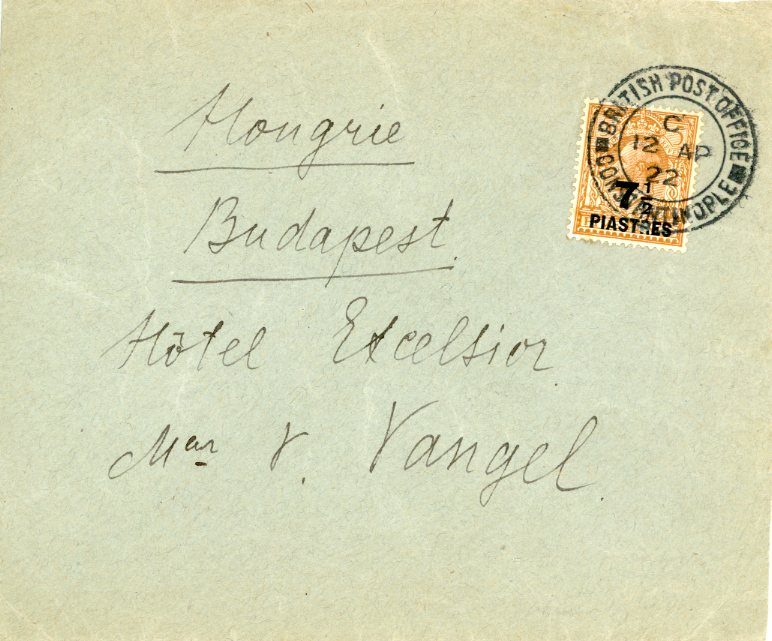 Hongrie
Budapest
Hôtel Excelsior
V. Vangel
BRITISH POST OFFICE
CONSTANTINOPLE
C
12 AP
22
7 1/2
PIASTRES